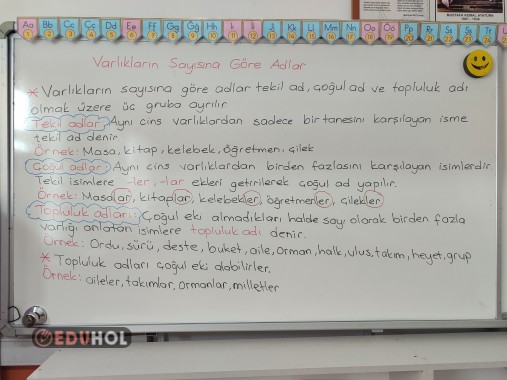 Aa Bb Cc Çç Dd Ee Ff Gg Ğğ Hh Iı İi Jj Kk Ll Mm Nn Oo Öö Pp Rr Ss Şş Tt
MUSTAFA KEMAL ATATÜRK
Varlıkların Sayısına Göre Adlar
* Varlıkların sayısına göre adlar tekil ad, çoğul ad ve topluluk adı
olmak üzere üç gruba ayrılır.
Tekil adlar: Aynı cins varlıklardan sadece bir tanesini karşılayan isme
tekil ad denir.
Örnek: Masa, kitap, kelebek, öğretmen, çilek
Çoğul adlar: Aynı cins varlıklardan birden fazlasını karşılayan isimlerdir.
Tekil isimlere -ler, -lar ekleri getirilerek çoğul ad yapılır.
Örnek: Masalar, kitaplar, kelebekler, öğretmenler, çilekler
Topluluk adları: Çoğul eki almadıkları halde sayı olarak birden fazla
varlığı anlatan isimlere topluluk adı denir.
Örnek: Ordu, sürü, deste, buket, aile, orman, halk, ulus, takım, heyet, grup
* Topluluk adları çoğul eki alabilirler.
Örnek: aileler, takımlar, ormanlar, milletler
EDUHOL